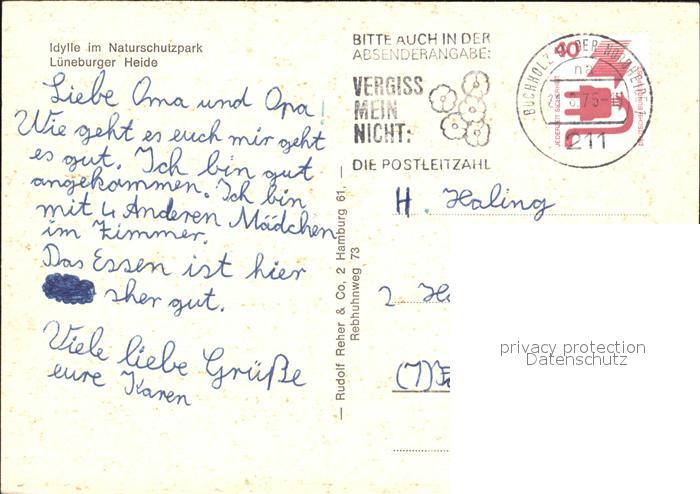 Idylle im Naturschutzpark
Lüneburger Heide
Liebe Oma und Opa!
Wie geht es euch mir geht
es gut. Ich bin gut
angekommen. Ich bin
mit 4 Anderen Mädchen
im Zimmer.
Das Essen ist hier
sher gut.
Viele liebe Grüße
eure Karen
— Rudolf Reher & Co, 2 Hamburg 61, —
Rebhuhnweg 73
BITTE AUCH IN DER
ABSENDERANGABE:
VERGISS
MEIN
NICHT:
DIE POSTLEITZAHL
40
JEDERZEIT SICHERHEIT
BUCHHOLZ
211
H. Haling
2 Ha
(7)
privacy protection
Datenschutz